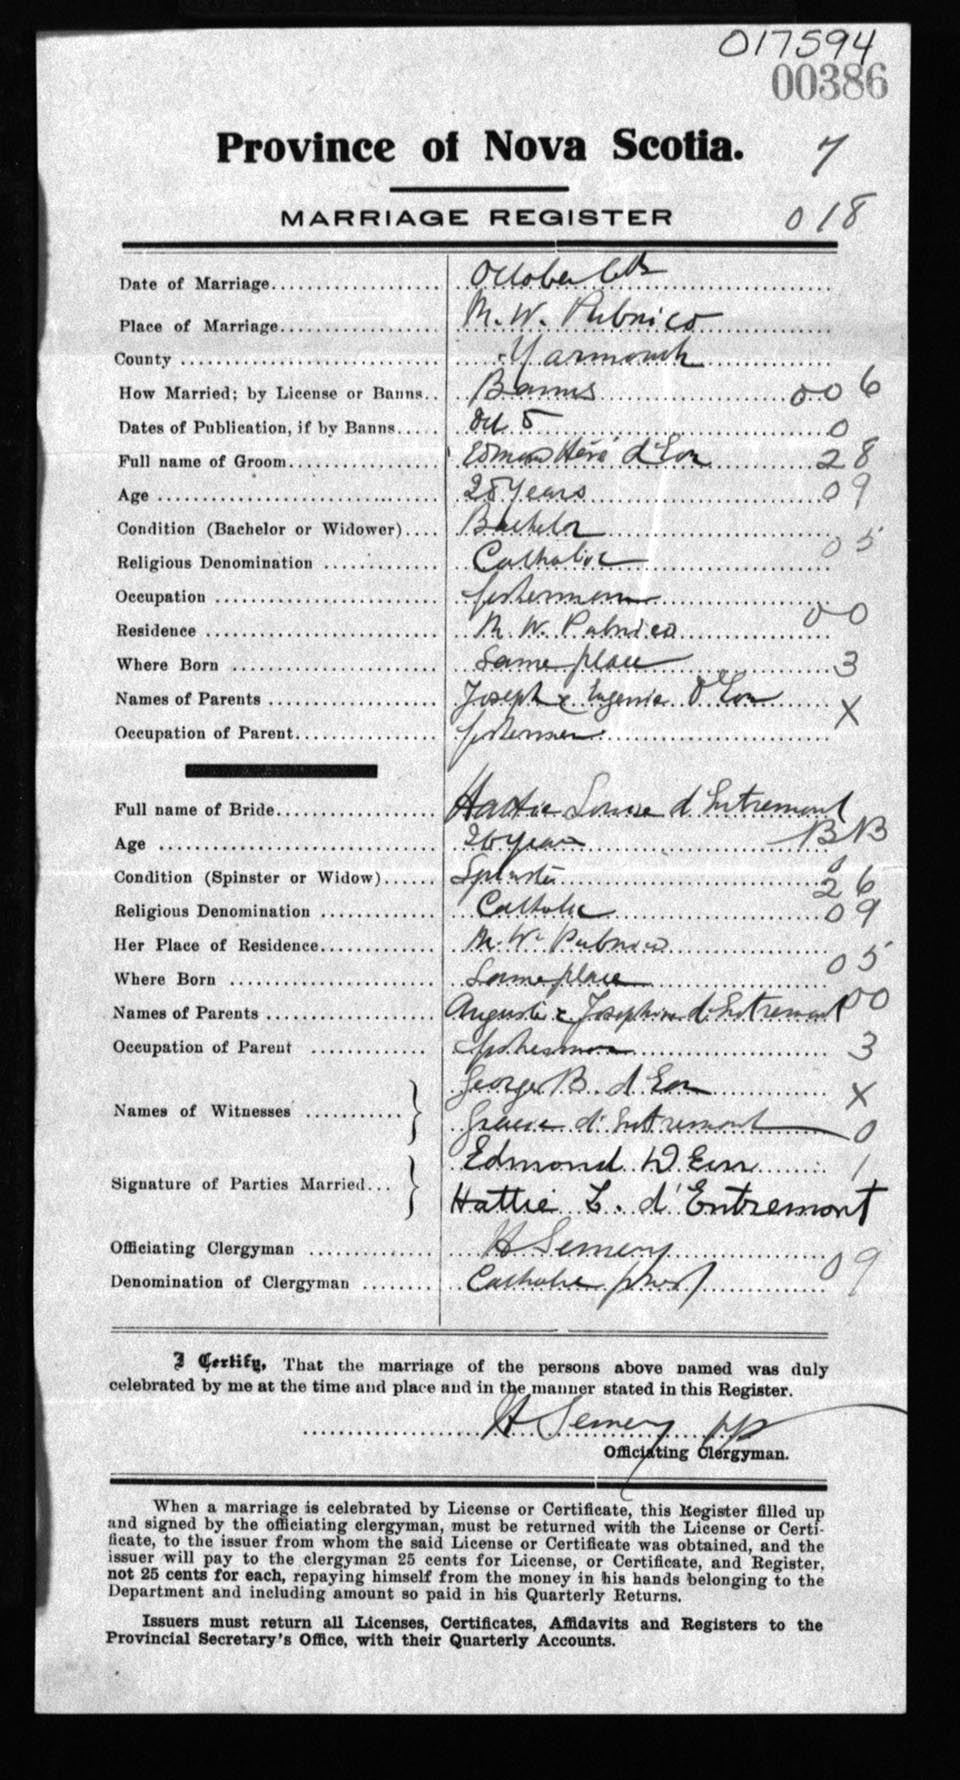 017594
00386
Province of Nova Scotia. 7
MARRIAGE REGISTER 018
Date of Marriage.................... October 6th
Place of Marriage................. M. W. Pubnico
County ............................... Yarmouth
How Married; by License or Banns.. Banns 006
Dates of Publication, if by Banns..... Oct 5 0
Full name of Groom................... d'Eon 28
Age ................................... 28 years 09
Condition (Bachelor or Widower).... Bachelor
Religious Denomination ............. Catholic 05
Occupation .......................... fisherman
Residence ........................... M. W. Pubnico 00
Where Born ........................ Same place 3
Names of Parents .................... Joseph & Eugenie D'Eon X
Occupation of Parent................. fisherman
Full name of Bride................... Hattie Louise d'Entremont
Age ................................... 26 years BNB
Condition (Spinster or Widow)...... Spinster 26
Religious Denomination ............. Catholic 09
Her Place of Residence.............. M. W. Pubnico
Where Born ........................ Same place 05
Names of Parents .................... Auguste & Josephine d'Entremont 00
Occupation of Parent ............. fisherman 3
George B. d'Eon X
Names of Witnesses ...........
Gracie d'Entremont 0
Edmond D'Eon 1
Signature of Parties Married...
Hattie L. d'Entremont
Officiating Clergyman ............... H Semery 09
Denomination of Clergyman ........ Catholic priest
I Certify, That the marriage of the persons above named was duly
celebrated by me at the time and place and in the manner stated in this Register.
H Semery pp
Officiating Clergyman.
When a marriage is celebrated by License or Certificate, this Register filled up
and signed by the officiating clergyman, must be returned with the License or Certi-
ficate, to the issuer from whom the said License or Certificate was obtained, and the
issuer will pay to the clergyman 25 cents for License, or Certificate, and Register,
not 25 cents for each, repaying himself from the money in his hands belonging to the
Department and including amount so paid in his Quarterly Returns.
Issuers must return all Licenses, Certificates, Affidavits and Registers to the
Provincial Secretary's Office, with their Quarterly Accounts.